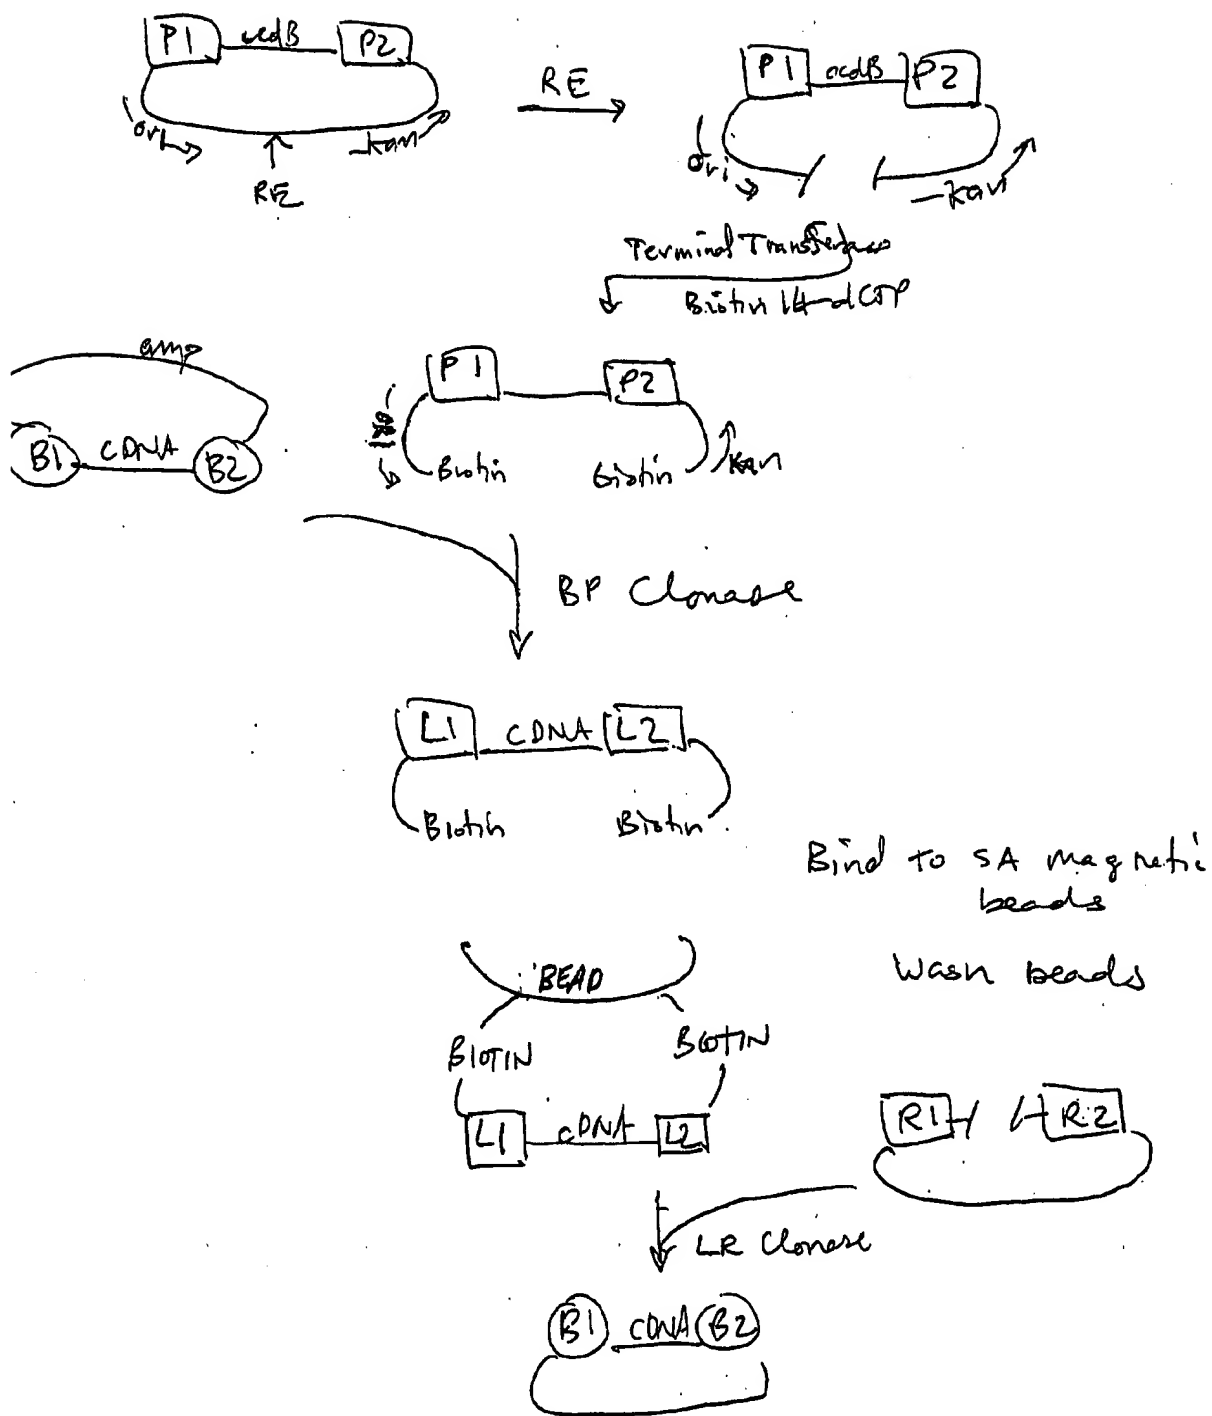 P1 ccdB P2
ori
kan
RE
RE
P1 ccdB P2
ori
kan
Terminal Transferase
Biotin 14-dCTP
amp
B1 CDNA B2
P1 P2
ORI
Biotin Biotin
kan
BP Clonase
L1 CDNA L2
Biotin Biotin
Bind to SA magnetic
beads
Wash beads
BEAD
BIOTIN BIOTIN
L1 cDNA L2
R1 R2
LR Clonase
B1 CDNA B2